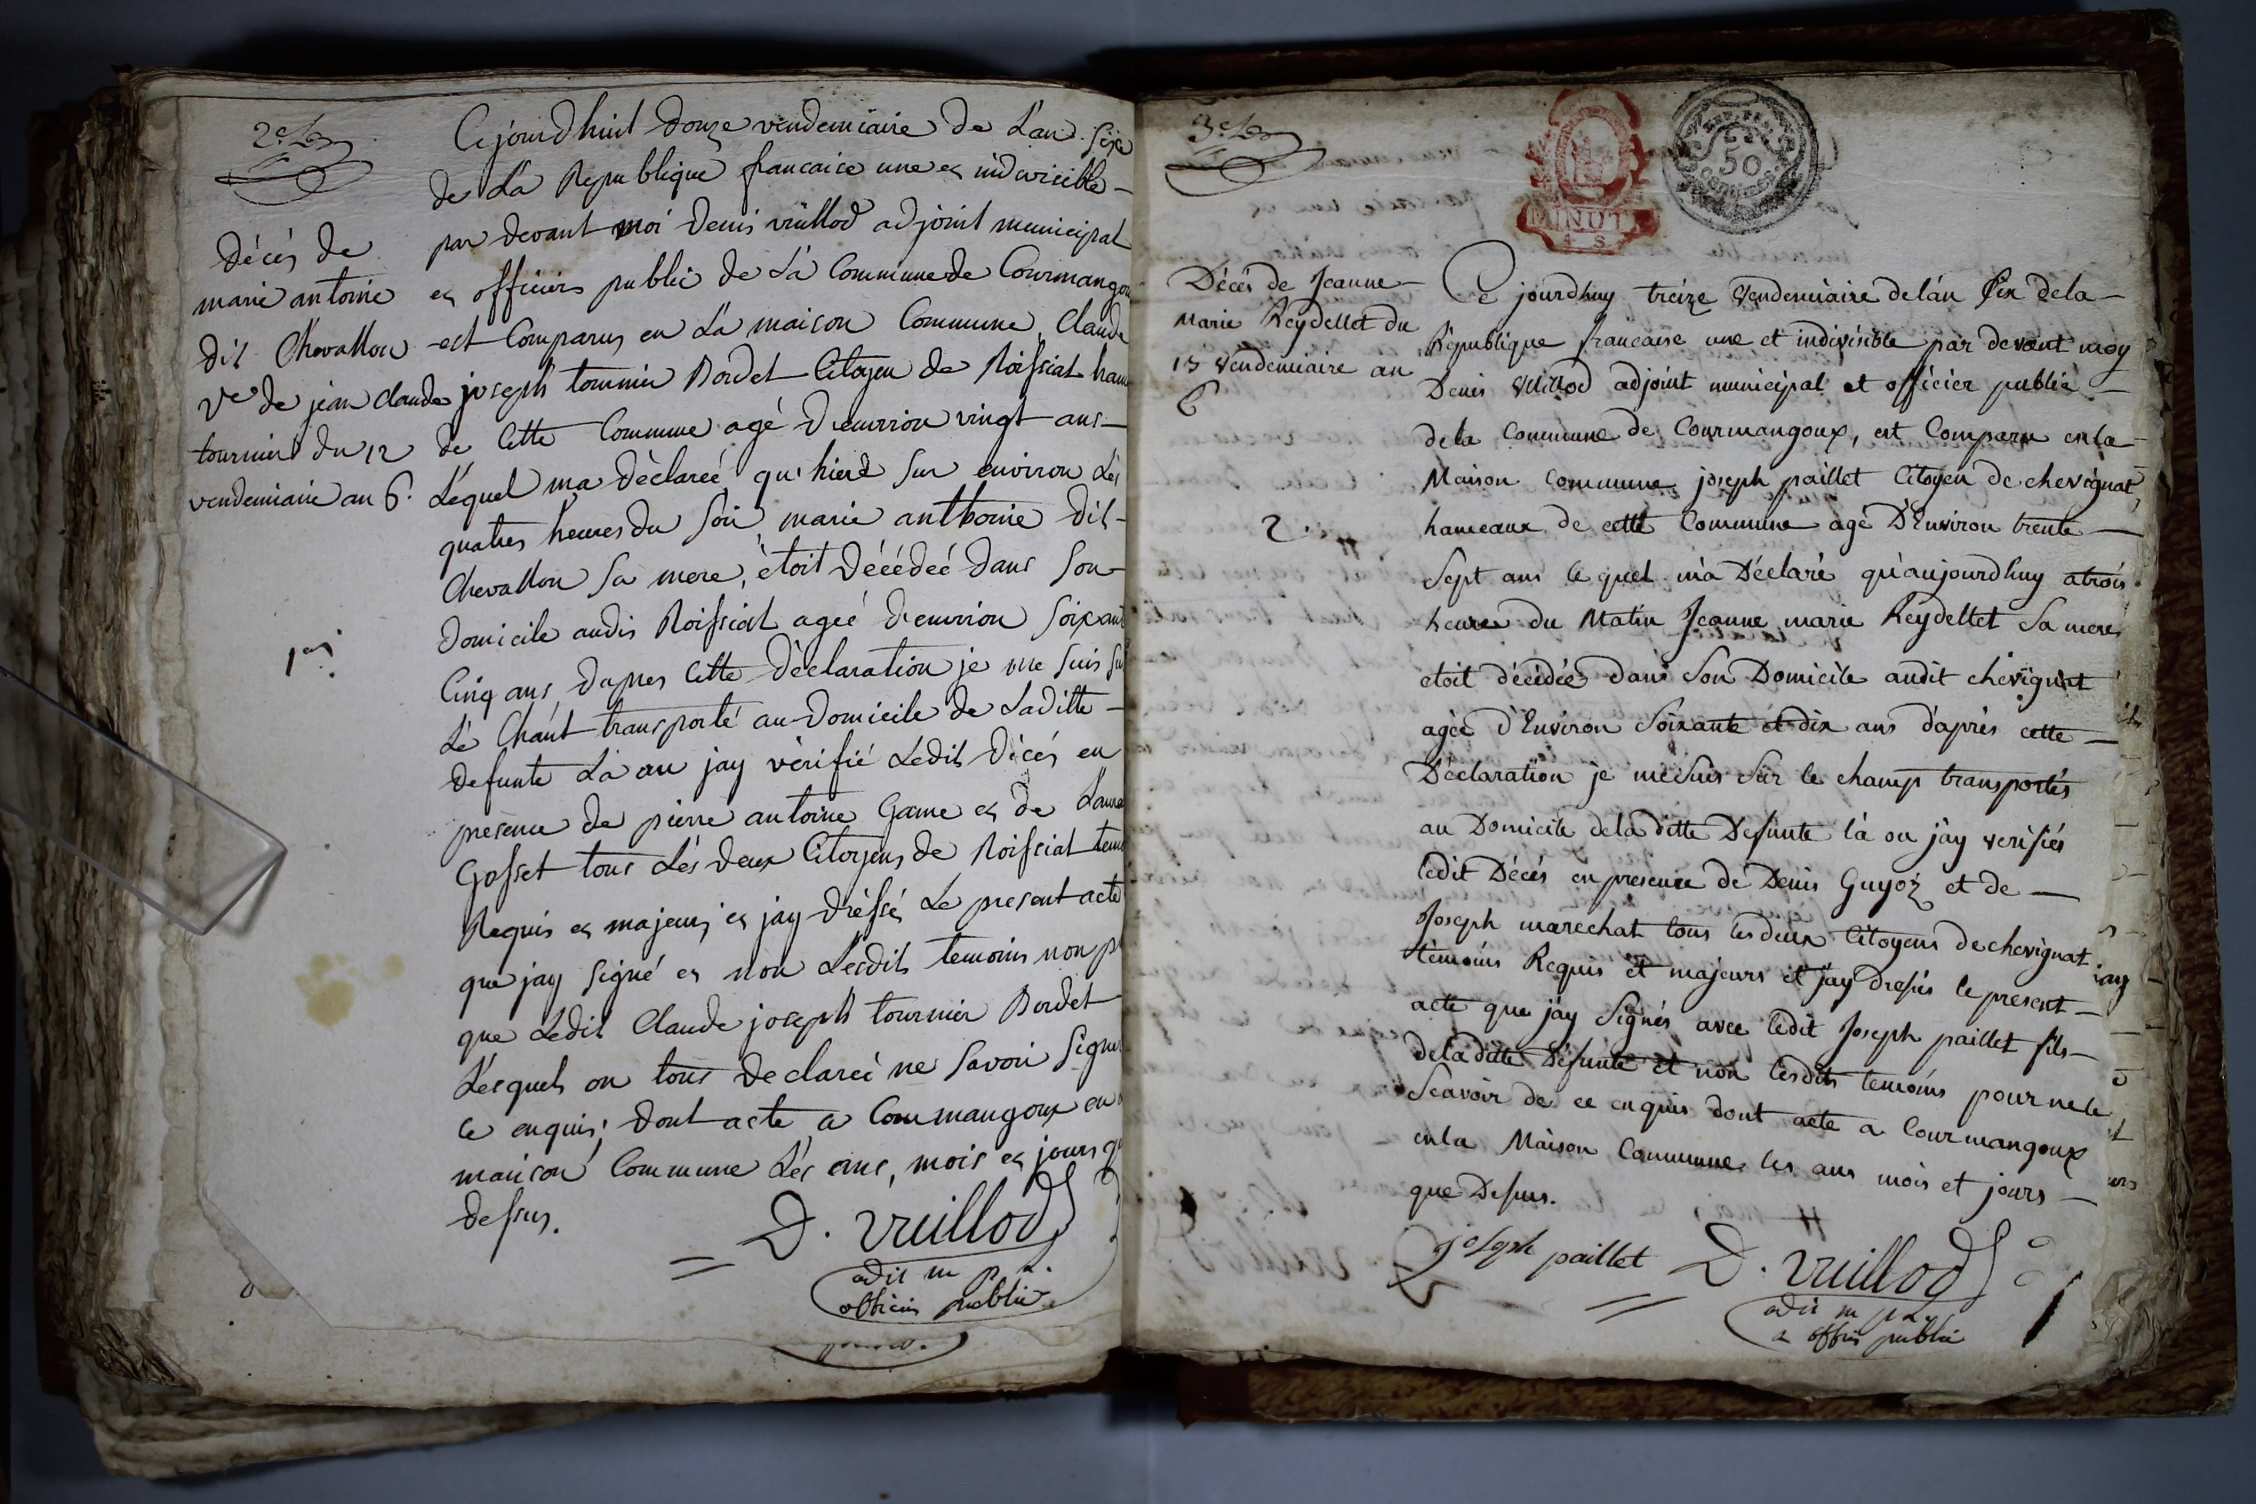 2e
Décés de
marie antoine
dit Chevallon
Ve de jean claude
tournier du 12
vendemiaire an 6.
1er
Cejourdhuit douze vendemiaire de Lan Sixe
de La Republique francaice une et indivicible
par devant moi Denis vuillod adjoint municipal
et officiers public de La Commune de Courmangou
est Comparus en La maison Commune, Claude
joseph tournier Bordet Citoyen de Roissiat ham
de Cette Commune agé d'environ vingt ans
Léquel ma déclareé qu'hierd Sur environ Les
quatres heures du Soir marie anthoine dit
Chevallon Sa mere, étoit décédeé dans Son
domicile audit Roissiat ageé d'environ Soixant
Cinq ans, dapres Cette déclaration je me Suis Su
Lé Chant transporté au domicile de Laditte
defunte La ou jay vérifié Ledit décés en
presence de pierre antoine Game et de Laure
Gosset tous Lés deux Citoyens de Roissiat tem
Requis et majeurs et jay dréssé Le present acte
que jay Signé et non Lesdits temoins non p
que Ledit Claude joseph tournier Bordet
Lésquels on tous declareé ne Savoir Signe
ce enquis; dont acte a Courmangoux en
maison Commune Lés ans, mois et jours q
dessus.
D. vuillod
adjt m p
officier public
3e
Décés de Jeanne
Marie Reydellet du
13 Vendemiaire an
6
2.
MINUT
4 S
50
Centimes
Ce jourdhuy treize Vendemiaire delán Six dela
République francaise une et indivisible par devant moy
Denis Vuillod adjoint municipal et officier public
dela Commune de Courmangoux, est Comparu enla
Maison Commune joseph paillet Citoyen de chevignat
hameaux de cette Commune agé D'Environ trente
Sept ans le quel m'a Déclaré qu'aujourdhuy atrois
heure du Matin Jeanne marie Reydellet Sa mere
etoit décédée dans Son Domicile audit chevignat
agée d'Environ Soixante et dix ans d'aprés cette
Déclaration je me Suis Sur le champ transportés
au Domicile dela ditte Defunte là ou j'ay verifiés
ledit Décés en presence de Denis Guyoz et de
Joseph marechat tous les deux Citoyens de chevignat
témoins Requis et majeurs et j'ay dressés le present
acte que j'ay Signés avec ledit Joseph paillet fils
dela ditte Defunte et non lesdits temoins pour ne le
Scavoir de ce enquis dont acte a Courmangoux
enla Maison Commune les ans mois et jours
que Dessus.
joseph paillet D. vuillod
adjt m pal
et offier public